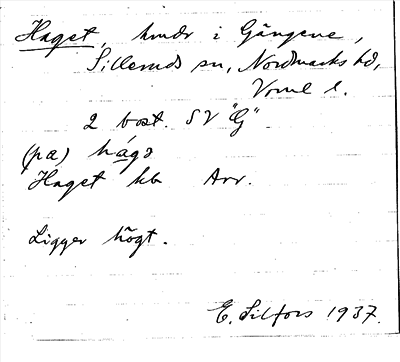 Haget, hmdr i Gängene,
Silleruds sn, Nordmarks hd,
Verml l.
2 bost. SV "G"
(pa) hágə
Haget kb Arr.
Ligger högt.
E. Silfors 1937.